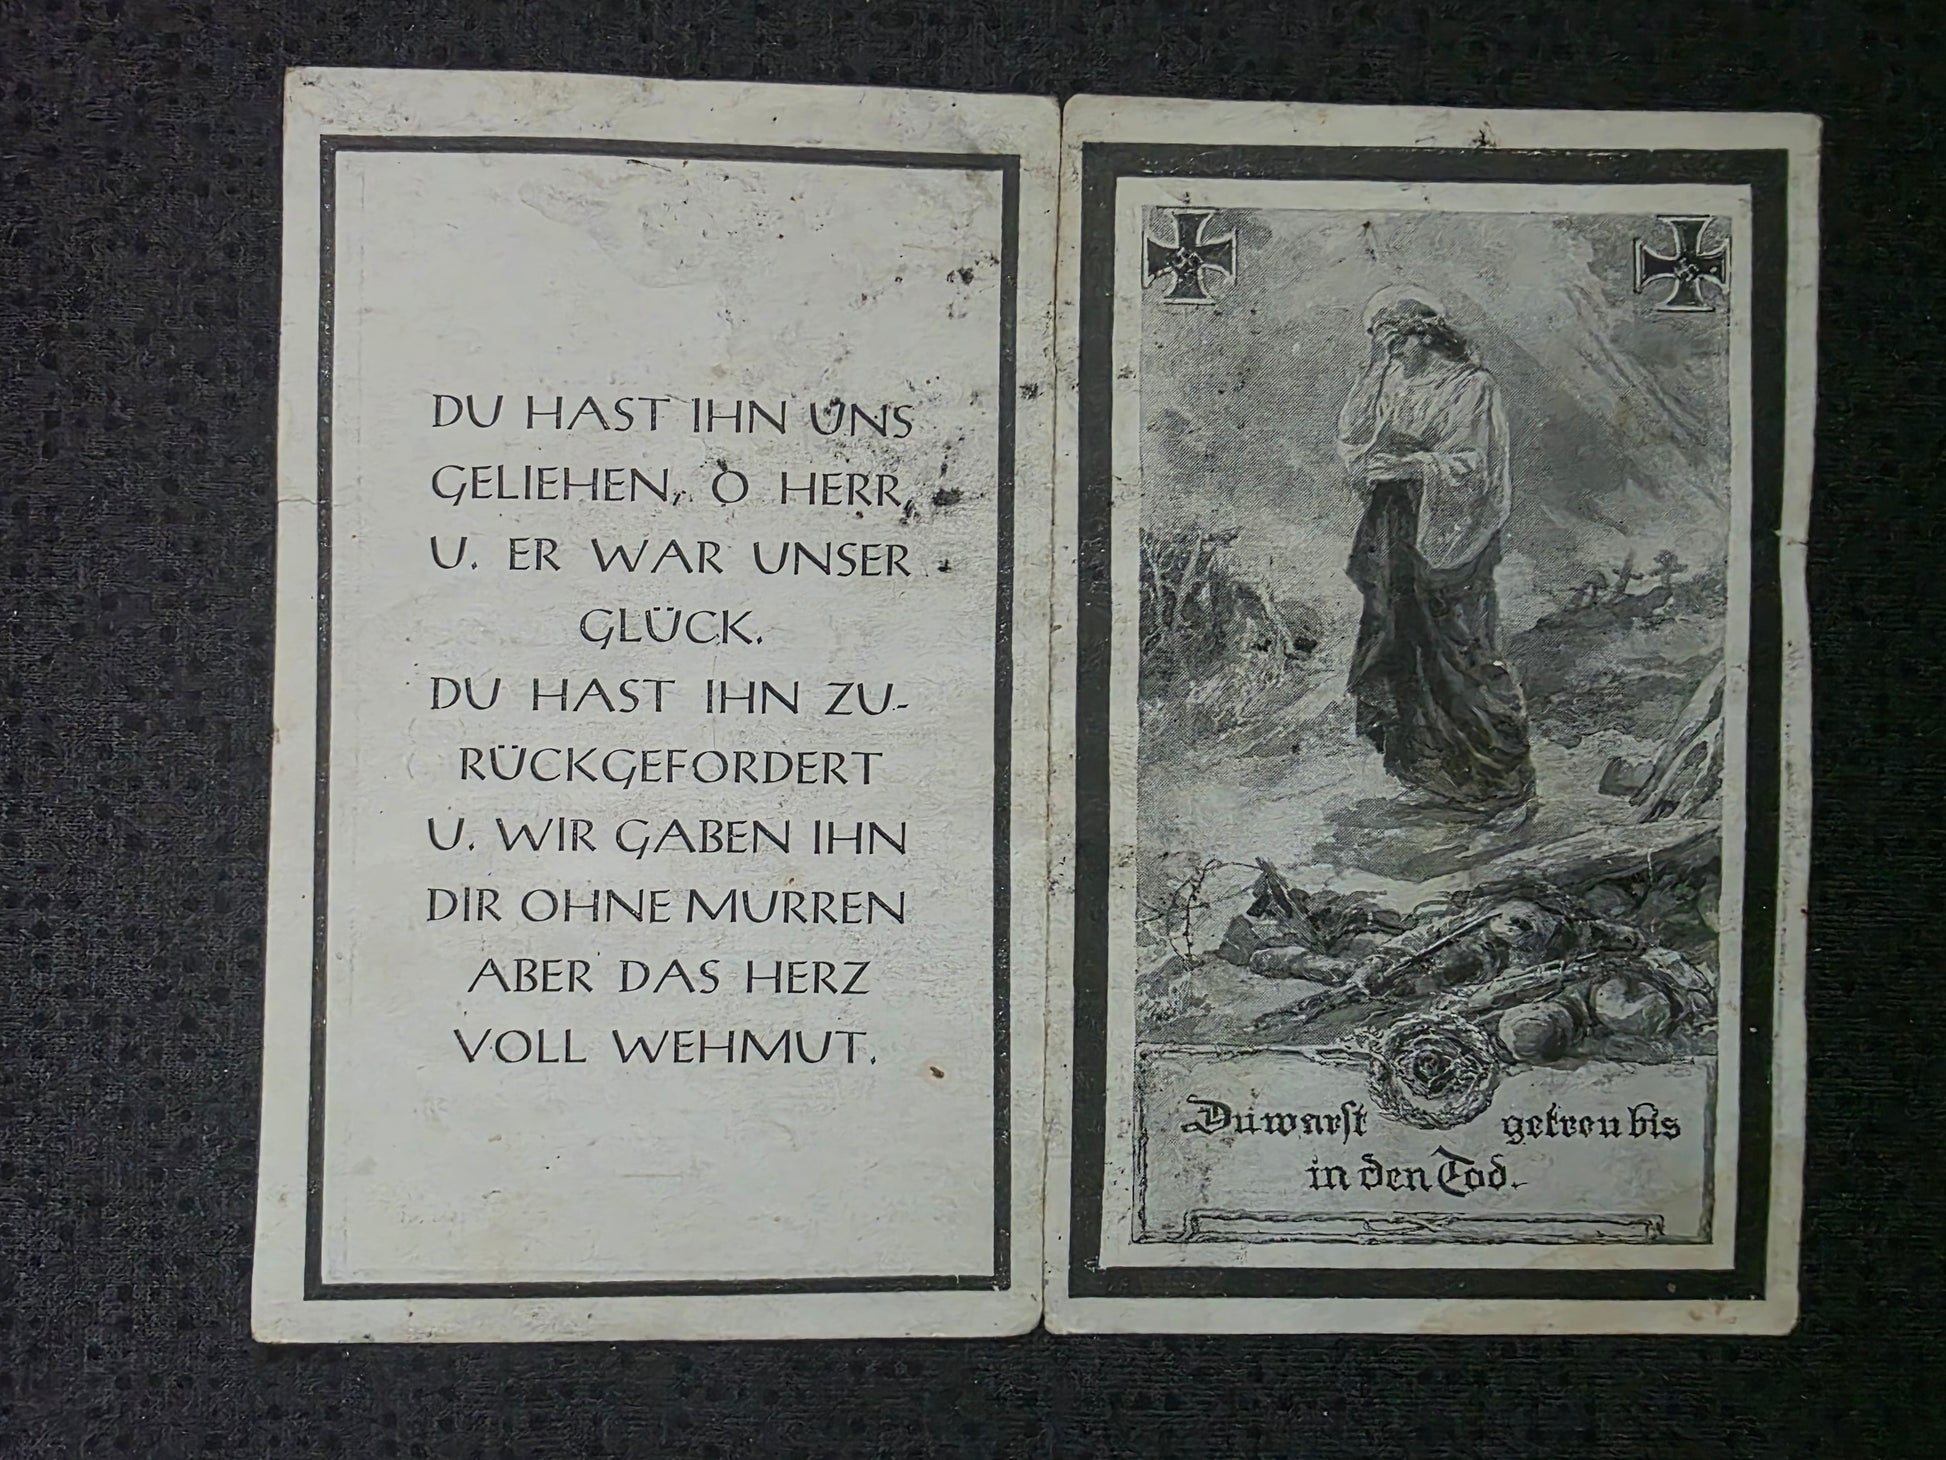 DU HAST IHN UNS
GELIEHEN, O HERR,
U. ER WAR UNSER
GLÜCK.
DU HAST IHN ZU-
RÜCKGEFORDERT
U. WIR GABEN IHN
DIR OHNE MURREN
ABER DAS HERZ
VOLL WEHMUT.
Du warst getreu bis
in den Tod.